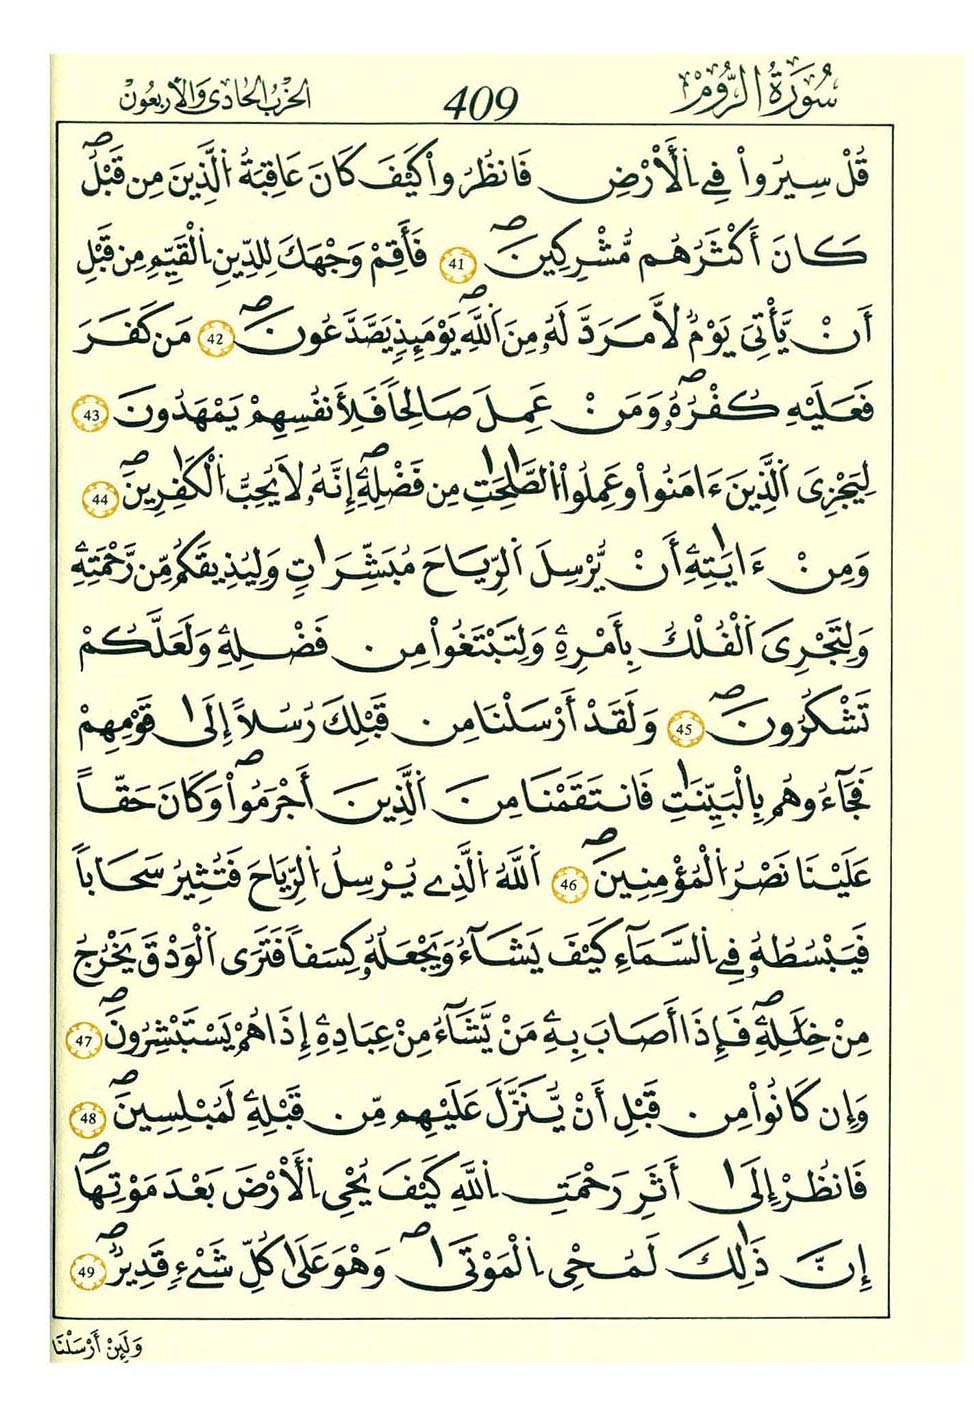 سُورَةُ الرُّومِ 409 الحزب الحادي والأربعون
قُلْ سِيرُواْ فِے اِلَارْضِ فَانظُرُواْ كَيْفَ كَانَ عَاقِبَةُ اُلَّذِينَ مِن قَبْلُۖ
كَانَ أَكْثَرُهُم مُّشْرِكِينَۖ 41 فَأَقِمْ وَجْهَكَ لِلدِّينِ اِلْقَيِّمِ مِن قَبْلِ
أَنْ يَّأْتِيَ يَوْمٌ لَّا مَرَدَّ لَهُۥ مِنَ اَللَّهِۖ يَوْمَئِذٍ يَصَّدَّعُونَۖ 42 مَن كَفَرَ
فَعَلَيْهِ كُفْرُهُۥۖ وَمَنْ عَمِلَ صَالِحاً فَلِأَنفُسِهِمْ يَمْهَدُونَ 43
لِيَجْزِيَ اَلَّذِينَ ءَامَنُواْ وَعَمِلُواْ اُلصَّٰلِحَٰتِ مِن فَضْلِهِۦۖ إِنَّهُۥ لَا يُحِبُّ اُلْكَٰفِرِينَۖ 44
وَمِنْ ءَايَٰتِهِۦ أَنْ يُّرْسِلَ اَلرِّيَاحَ مُبَشِّرَٰتٍ وَلِيُذِيقَكُم مِّن رَّحْمَتِهِۦ
وَلِتَجْرِيَ اَلْفُلْكُ بِأَمْرِهِۦ وَلِتَبْتَغُواْ مِن فَضْلِهِۦ وَلَعَلَّكُمْ
تَشْكُرُونَۖ 45 وَلَقَدْ أَرْسَلْنَا مِن قَبْلِكَ رُسُلاً إِلَىٰ قَوْمِهِمْ
فَجَآءُوهُم بِالْبَيِّنَٰتِ فَانتَقَمْنَا مِنَ اَلَّذِينَ أَجْرَمُواْۖ وَكَانَ حَقّاً
عَلَيْنَا نَصْرُ اُلْمُؤْمِنِينَۖ 46 اَللَّهُ اُلَّذِے يُرْسِلُ اُلرِّيَاحَ فَتُثِيرُ سَحَاباً
فَيَبْسُطُهُۥ فِے اِلسَّمَآءِ كَيْفَ يَشَآءُ وَيَجْعَلُهُۥ كِسَفاً فَتَرَى اَلْوَدْقَ يَخْرُجُ
مِنْ خِلَٰلِهِۦۖ فَإِذَا أَصَابَ بِهِۦ مَنْ يَّشَآءُ مِنْ عِبَادِهِۦ إِذَا هُمْ يَسْتَبْشِرُونَۖ 47
وَإِن كَانُواْ مِن قَبْلِ أَنْ يُّنَزَّلَ عَلَيْهِم مِّن قَبْلِهِۦ لَمُبْلِسِينَۖ 48
فَانظُرْ إِلَىٰ أَثَرِ رَحْمَتِ اِللَّهِ كَيْفَ يُحْيِ اِلْأَرْضَ بَعْدَ مَوْتِهَاۖ
إِنَّ ذَٰلِكَ لَمُحْيِ اِلْمَوْتَىٰۖ وَهُوَ عَلَىٰ كُلِّ شَےْءٍ قَدِيرٌۖ 49
وَلَئِنْ أَرْسَلْنَا